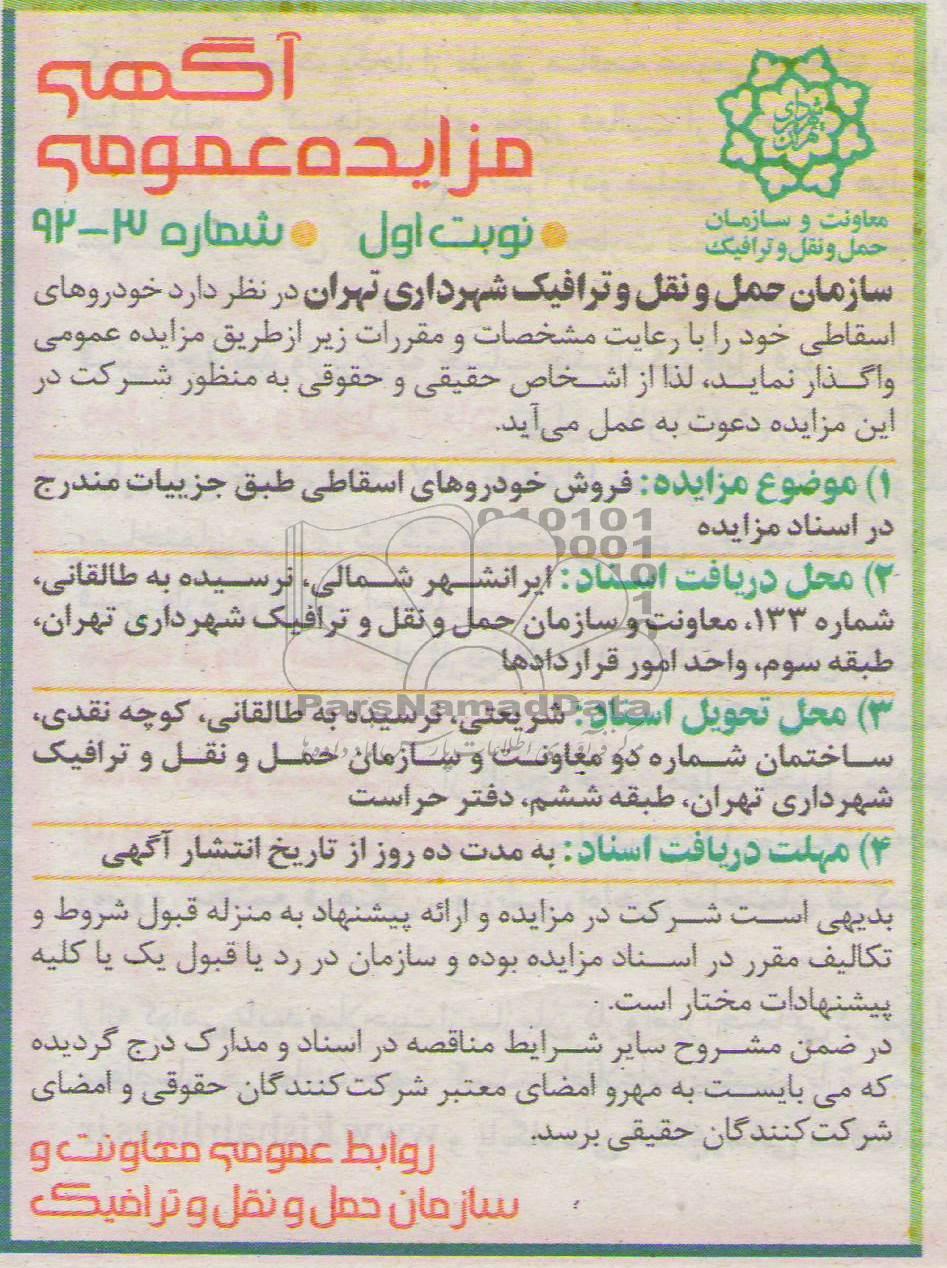 آگهی
مزایده عمومی
شهرداری تهران
معاونت و سازمان
حمل و نقل و ترافیک
نوبت اول شماره ۳–۹۲
سازمان حمل و نقل و ترافیک شهرداری تهران در نظر دارد خودروهای
اسقاطی خود را با رعایت مشخصات و مقررات زیر ازطریق مزایده عمومی
واگذار نماید، لذا از اشخاص حقیقی و حقوقی به منظور شرکت در
این مزایده دعوت به عمل می‌آید.
۱) موضوع مزایده: فروش خودروهای اسقاطی طبق جزییات مندرج
در اسناد مزایده
۲) محل دریافت اسناد: ایرانشهر شمالی، نرسیده به طالقانی،
شماره ۱۳۳، معاونت و سازمان حمل و نقل و ترافیک شهرداری تهران،
طبقه سوم، واحد امور قراردادها
ParsNamadData
۳) محل تحویل اسناد: شریعتی، نرسیده به طالقانی، کوچه نقدی،
ساختمان شماره دو معاونت و سازمان حمل و نقل و ترافیک
شهرداری تهران، طبقه ششم، دفتر حراست
۴) مهلت دریافت اسناد: به مدت ده روز از تاریخ انتشار آگهی
بدیهی است شرکت در مزایده و ارائه پیشنهاد به منزله قبول شروط و
تکالیف مقرر در اسناد مزایده بوده و سازمان در رد یا قبول یک یا کلیه
پیشنهادات مختار است.
در ضمن مشروح سایر شرایط مناقصه در اسناد و مدارک درج گردیده
که می بایست به مهر و امضای معتبر شرکت‌کنندگان حقوقی و امضای
شرکت‌کنندگان حقیقی برسد.
روابط عمومی معاونت و
سازمان حمل و نقل و ترافیک